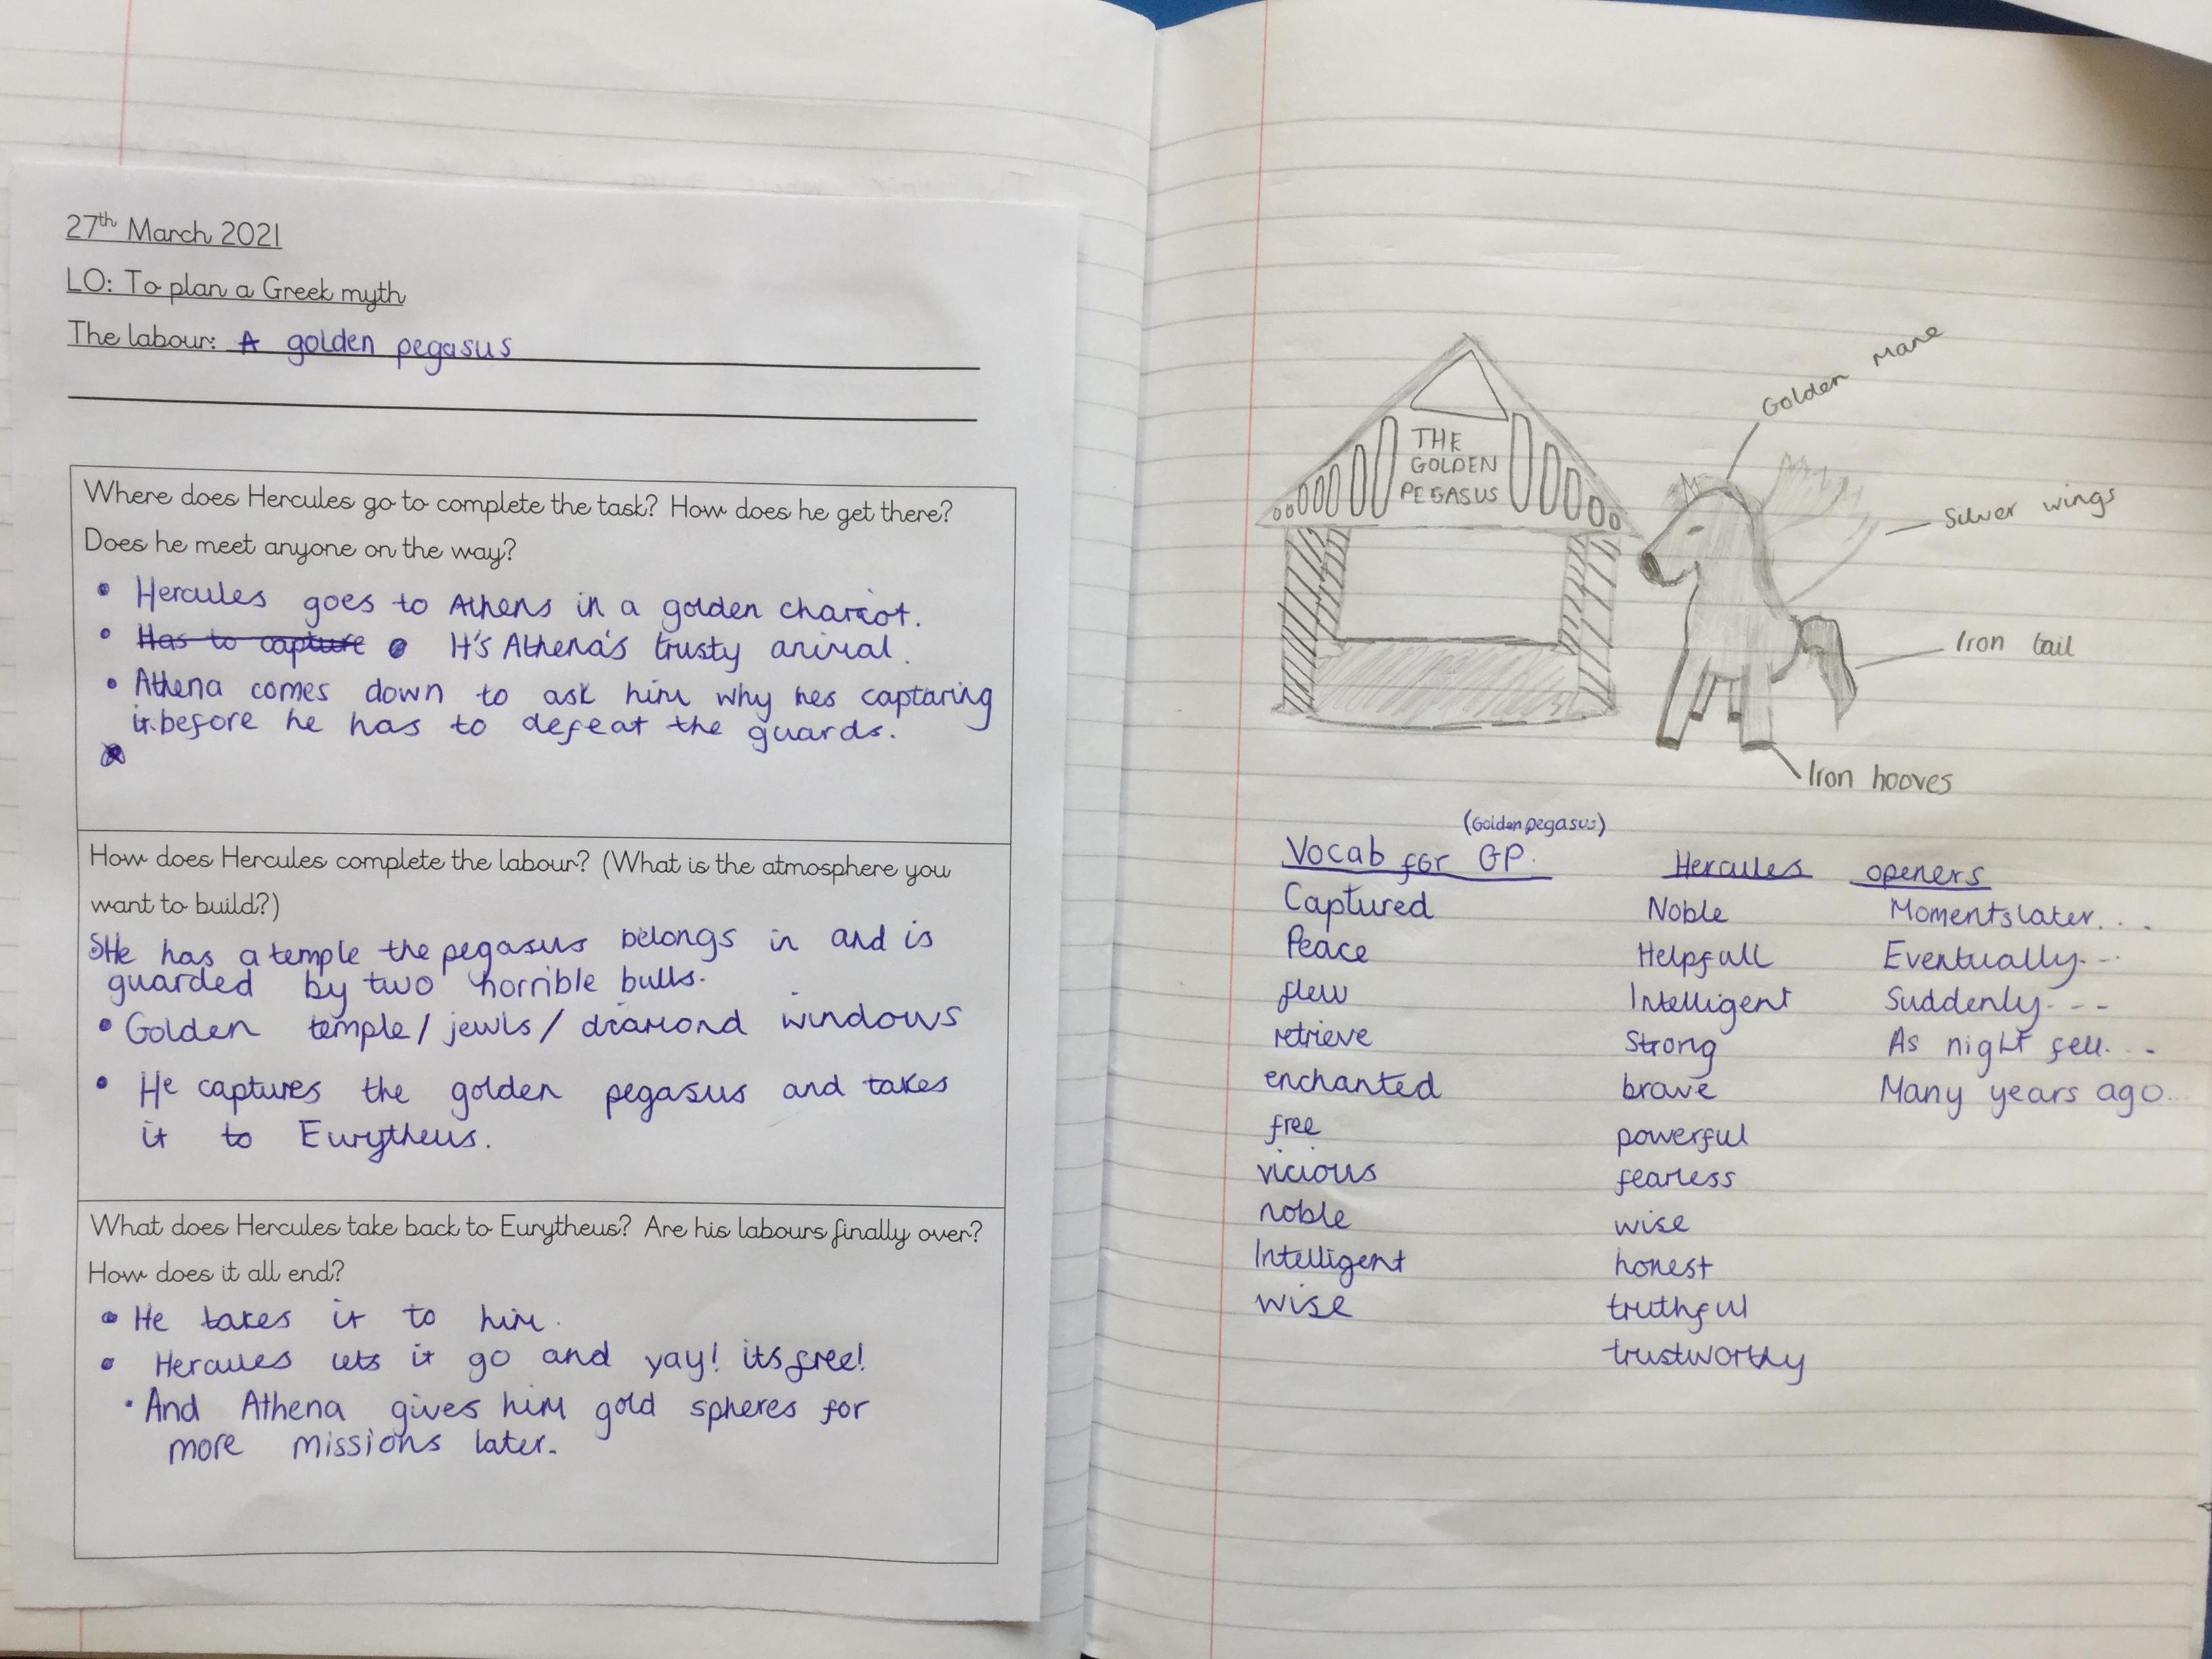 27th March 2021
LO: To plan a Greek myth
The labour: A golden pegasus
Where does Hercules go to complete the task? How does he get there?
Does he meet anyone on the way?
• Hercules goes to Athens in a golden chariot.
• Has to capture It's Athena's trusty animal.
• Athena comes down to ask him why hes captaring
it.before he has to defeat the guards.
How does Hercules complete the labour? (What is the atmosphere you
want to build?)
SHe has a temple the pegasus belongs in and is
guarded by two horrible bulls.
• Golden temple/jewls/diamond windows
• He captures the golden pegasus and takes
it to Eurytheus.
What does Hercules take back to Eurytheus? Are his labours finally over?
How does it all end?
• He takes it to him.
• Hercules lets it go and yay! its free!
• And Athena gives him gold spheres for
more missions later.
THE
GOLDEN
PEGASUS
Golden Mane
Silver wings
Iron tail
Iron hooves
(Golden pegasus)
Vocab for GP.
Captured
Peace
flew
retrieve
enchanted
free
vicious
noble
Intelligent
wise
Hercules
Noble
Helpfull
Intelligent
Strong
brave
powerful
fearless
wise
honest
truthful
trustworthy
openers
Moments later...
Eventually...
Suddenly...
As night fell...
Many years ago...